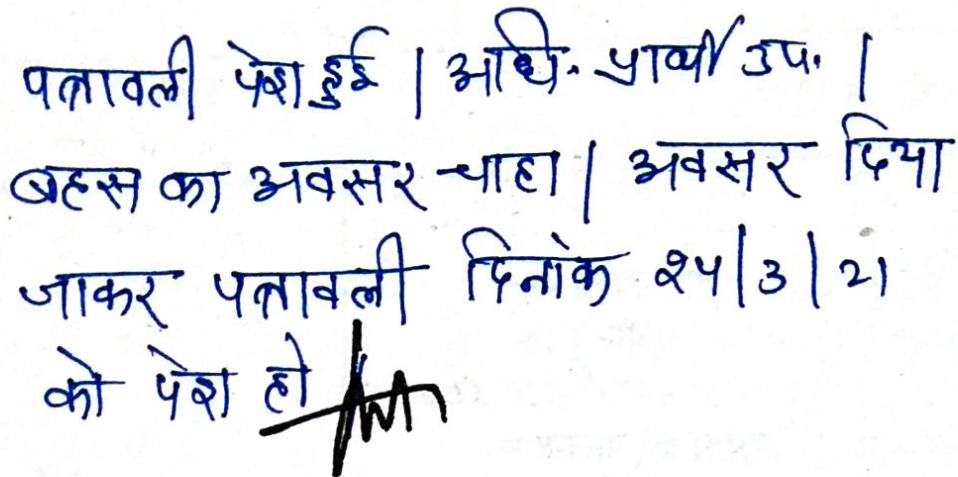 पत्रावली पेश हुई | अधि. प्रार्थी उप. |
बहस का अवसर चाहा | अवसर दिया
जाकर पत्रावली दिनांक २५/3/21
को पेश हो